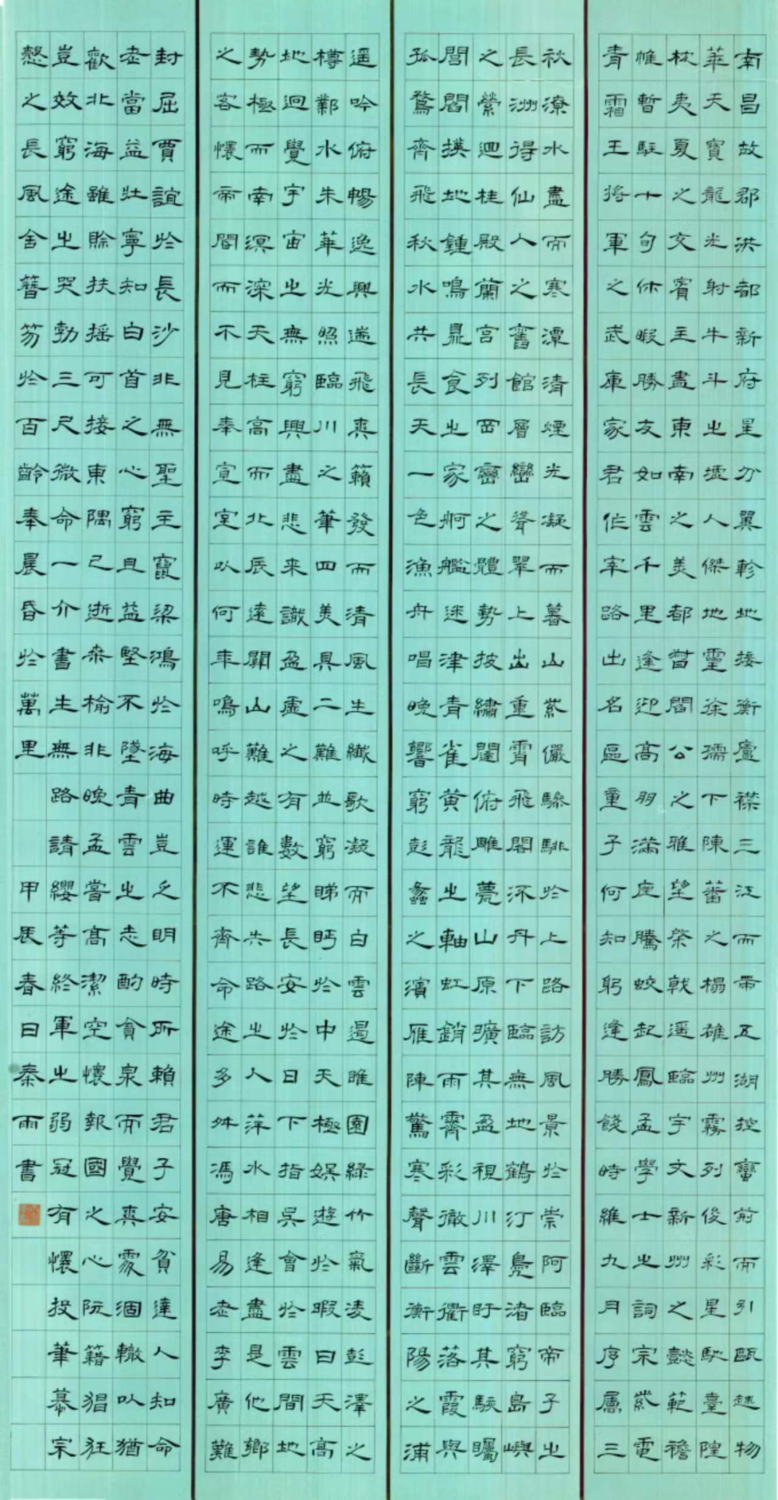 南昌故郡洪都新府星分翼軫地接衡廬襟三江而帶五湖控蠻荊而引甌越物
華天寶龍光射牛斗之墟人傑地靈徐孺下陳蕃之榻雄州霧列俊彩星馳臺隍
枕夷夏之交賓主盡東南之美都督閻公之雅望棨戟遙臨宇文新州之懿範襜
帷暫駐十旬休暇勝友如雲千里逢迎高朋滿座騰蛟起鳳孟學士之詞宗紫電
青霜王將軍之武庫家君作宰路出名區童子何知躬逢勝餞時維九月序屬三
秋潦水盡而寒潭清煙光凝而暮山紫儼驂騑於上路訪風景於崇阿臨帝子之
長洲得仙人之舊館層巒聳翠上出重霄飛閣流丹下臨無地鶴汀鳧渚窮島嶼
之縈迴桂殿蘭宮列岡巒之體勢披繡闥俯雕甍山原曠其盈視川澤盱其駭矚
閭閻撲地鍾鳴鼎食之家舸艦迷津青雀黃龍之軸虹銷雨霽彩徹雲衢落霞與
孤鶩齊飛秋水共長天一色漁舟唱晚響窮彭蠡之濱雁陣驚寒聲斷衡陽之浦
遥吟俯暢逸興遄飛爽籟發而清風生纖歌凝而白雲遏睢園綠竹氣凌彭澤之
樽鄴水朱華光照臨川之筆四美具二難並窮睇眄於中天極娛遊於暇日天高
地迥覺宇宙之無窮興盡悲來識盈虛之有數望長安於日下指吳會於雲間地
勢極而南溟深天柱高而北辰遠關山難越誰悲失路之人萍水相逢盡是他鄉
之客懷帝閽而不見奉宣室以何年嗚呼時運不齊命途多舛馮唐易老李廣難
封屈賈誼於長沙非無聖主竄梁鴻於海曲豈乏明時所賴君子安貧達人知命
老當益壯寧知白首之心窮且益堅不墜青雲之志酌貪泉而覺爽處涸轍以猶
歡北海雖賒扶搖可接東隅已逝桑榆非晚孟嘗高潔空懷報國之心阮籍猖狂
豈效窮途之哭勃三尺微命一介書生無路請纓等終軍之弱冠有懷投筆慕宗
慤之長風舍簪笏於百齡奉晨昏於萬里 甲辰春日秦雨書